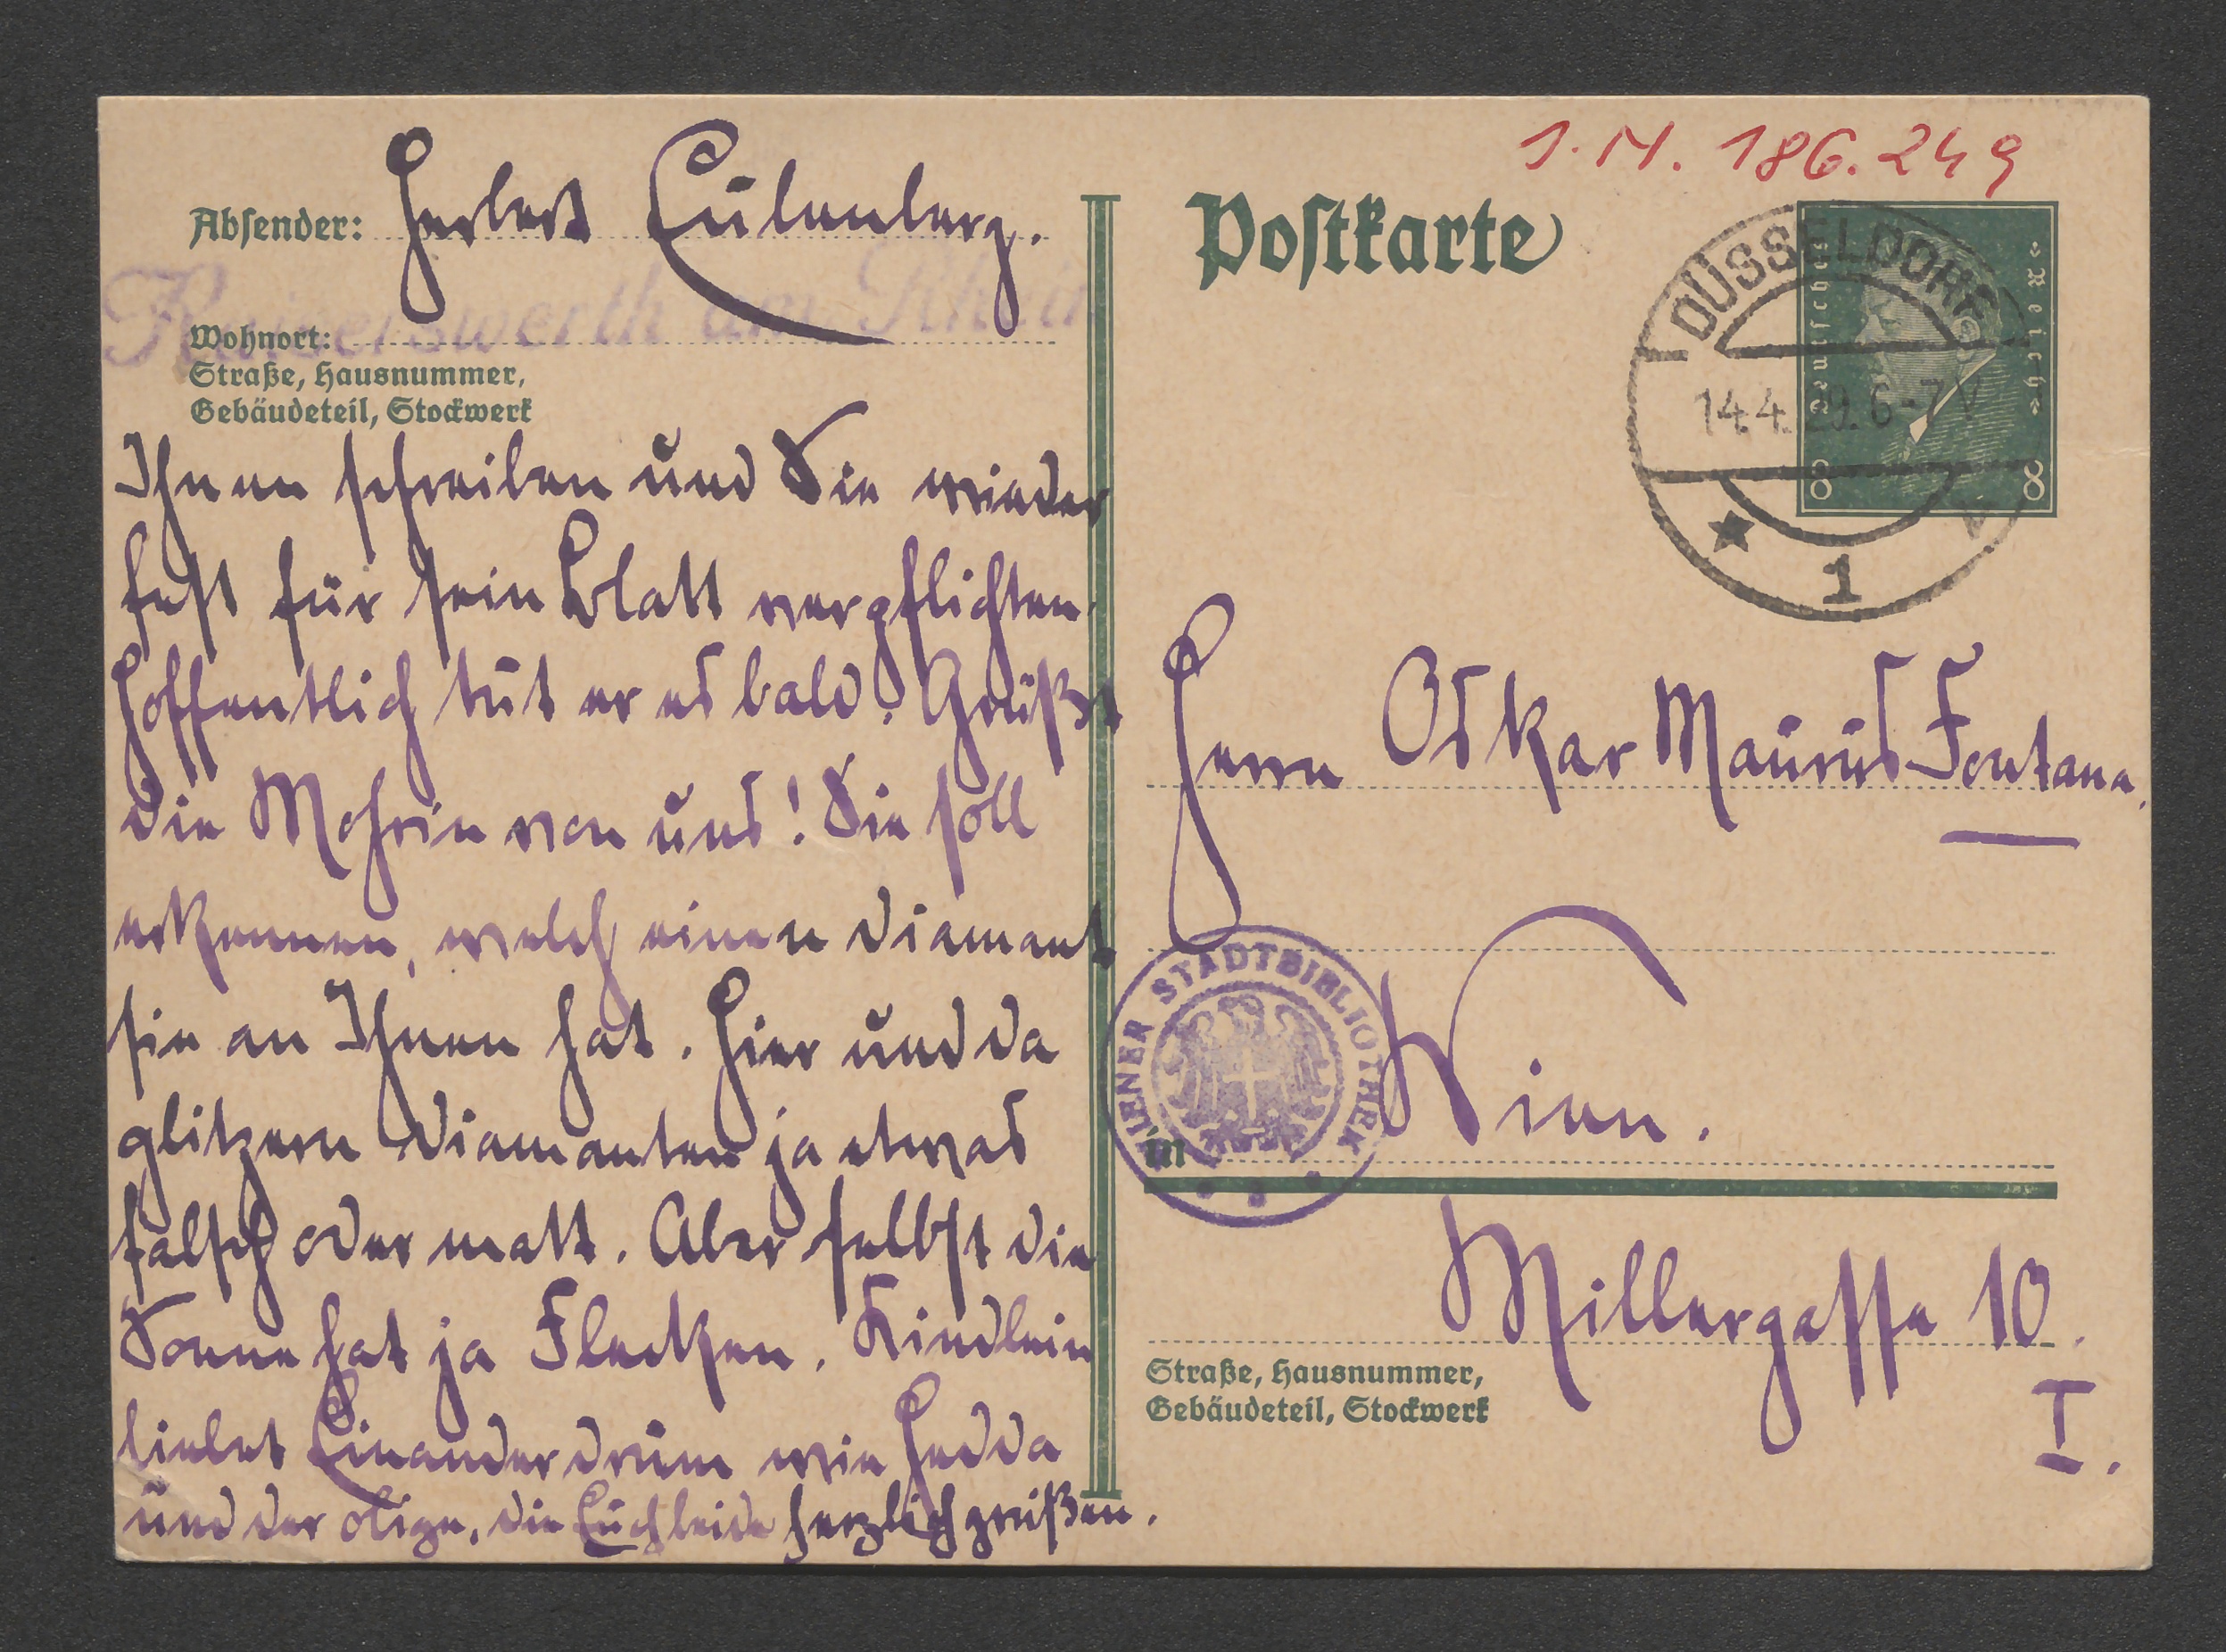 Absender: Herbert Eulenberg.
Kaiserswerth am Rhein
Wohnort:
Straße, Hausnummer,
Gebäudeteil, Stockwerk
Ihnen schreiben und Sie wieder
fest für sein Blatt verpflichten.
Hoffentlich tut er es bald. Grüßt
die Mohrin von uns! Sie soll
erkennen, welch einen Diamant
sie an Ihnen hat. Hier und da
glitzern Diamanten ja etwas
falsch oder matt. Aber selbst die
Sonne hat ja Flecken. Kindlein
liebet Einander drum wie Hedda
und der obige, die Euch beide herzlich grüßen.
J.N. 186.249
Postkarte
Deutsches Reich
DÜSSELDORF
14.4.29.6-7V
8 8
1
Herrn Oskar Maurus Fontana.
WIENER STADTBIBLIOTHEK
in Wien.
Millergasse 10.
I.
Straße, Hausnummer,
Gebäudeteil, Stockwerk